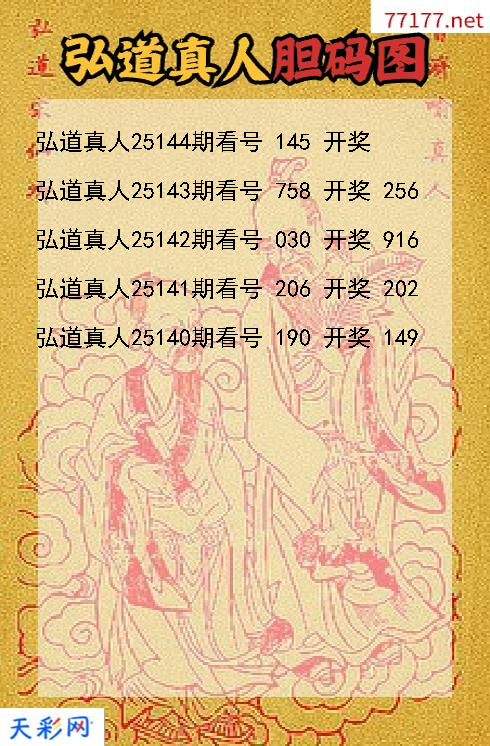 77177.net
弘道真人胆码图
弘道真人25144期看号 145 开奖
弘道真人25143期看号 758 开奖 256
弘道真人25142期看号 030 开奖 916
弘道真人25141期看号 206 开奖 202
弘道真人25140期看号 190 开奖 149
天彩网